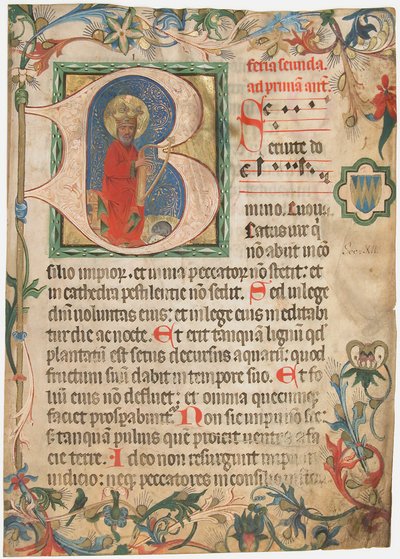 feria secunda
ad primā ant̄.
Seruite do
mino. Euouae
Beatus uir q̄
nō abiit in cō
silio impior̄. et in uia peccator̄ nō stetit: et
in cathedra pestilencie nō sedit. Sed in lege
dn̄i uoluntas eius: et in lege eius meditabi
tur die ac nocte. Et erit tanquā lignū qd̄
plantatū est secus decursus aquarū: quod
fructum suū dabit in tempore suo. Et fo
liū eius nō defluet: et omnia quecunq;
faciet prosperabunt̄. Non sic impii nō sic:
s; tanquā puluis quē proicit uentus a fa
cie terre. Ideo non resurgunt impii in
iudicio: neq; peccatores in consilio